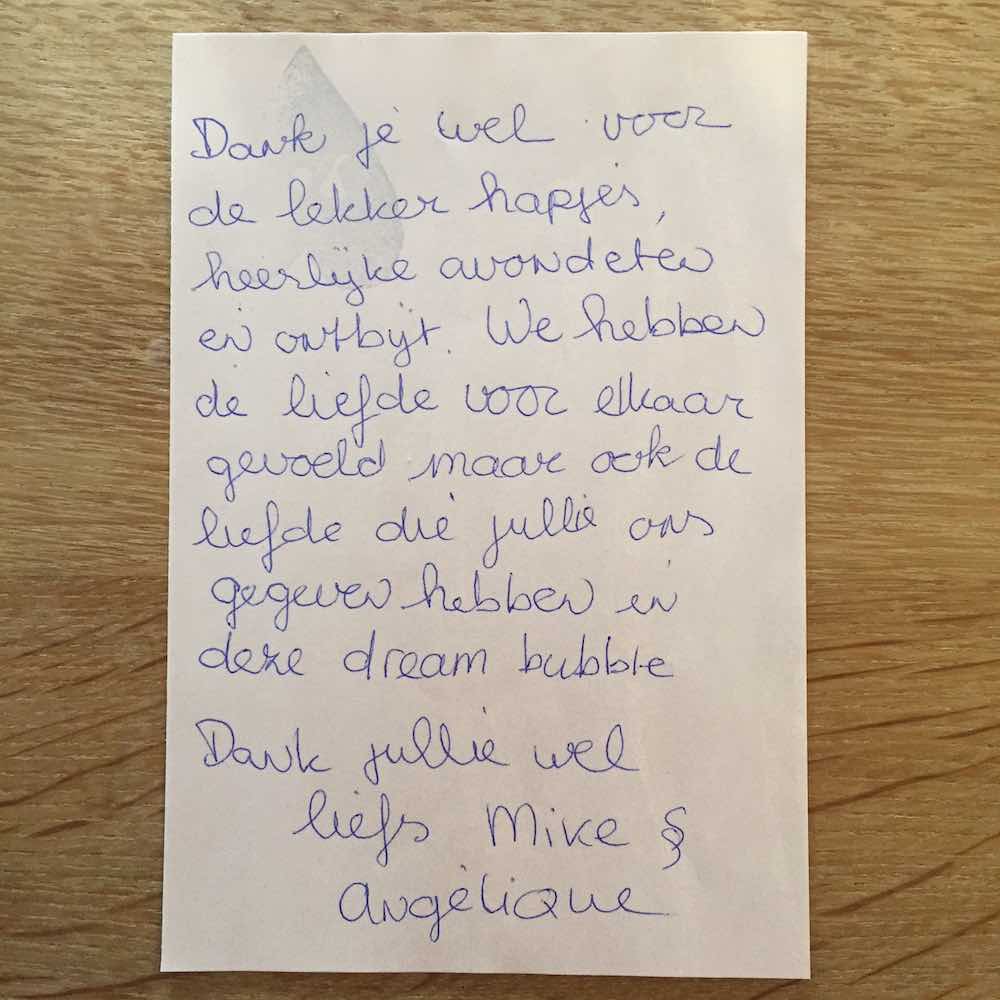 Dank je wel voor
de lekker hapjes,
heerlijke avondeten
en ontbijt. We hebben
de liefde voor elkaar
gevoeld maar ook de
liefde die jullie ons
gegeven hebben in
deze dream bubble
Dank jullie wel
liefs Mike §
Angélique